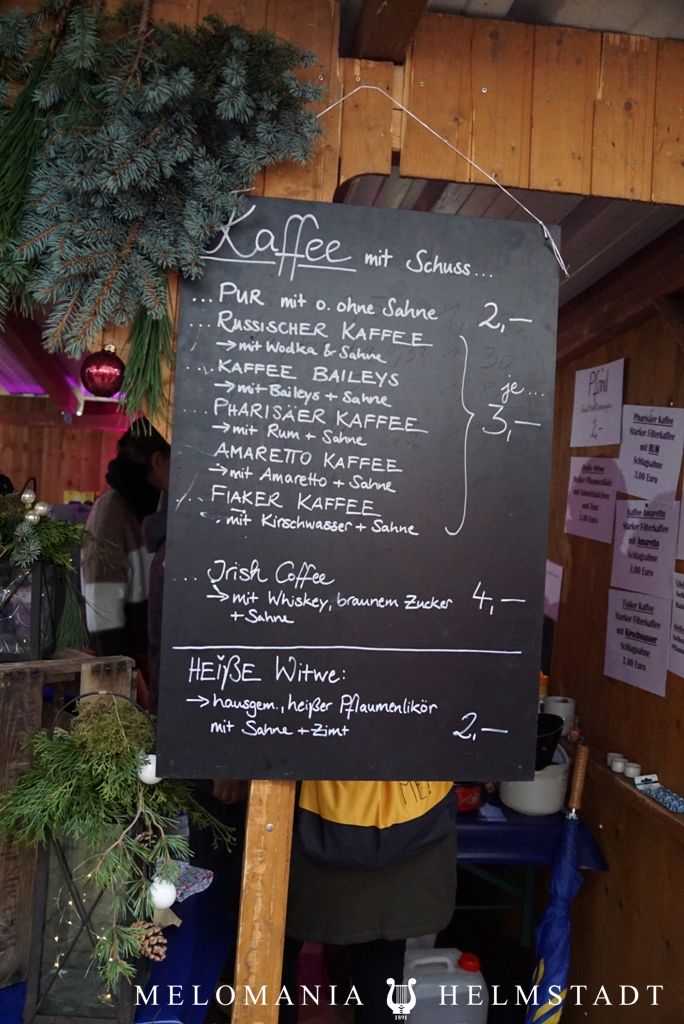 Kaffee mit Schuss...
... PUR mit o. ohne Sahne 2,—
... RUSSISCHER KAFFEE
→ mit Wodka & Sahne
... KAFFEE BAILEYS
→ mit Baileys + Sahne
... PHARISÄER KAFFEE
→ mit Rum + Sahne
AMARETTO KAFFEE
→ mit Amaretto + Sahne
... FIAKER KAFFEE
mit Kirschwasser + Sahne
je...
3,—
... Irish Coffee
→ mit Whiskey, braunem Zucker
+ Sahne
4,—
HEIßE Witwe:
→ hausgem., heißer Pflaumenlikör
mit Sahne + Zimt
2,—
Pfand
2,-
Pharisäer Kaffee
Starker Filterkaffee
mit RUM
Schlagsahne
3.00 Euro
Heiße Witwe
Heißer Pflaumenlikör
mit Sahnehäubchen
und Zimt
2.00 Euro
Kaffee Amaretto
Starker Filterkaffee
mit Amaretto
Schlagsahne
3.00 Euro
Fiaker Kaffee
Starker Filterkaffee
mit Kirschwasser
Schlagsahne
3.00 Euro
MELOMANIA HELMSTADT
1891